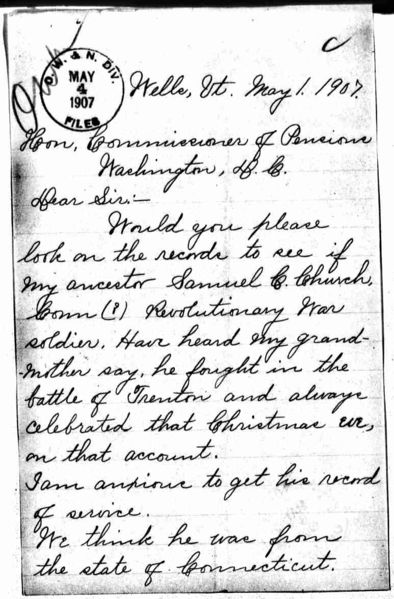 O. W. & N. DIV.
MAY
4
1907
FILES
Wells, Vt. May 1. 1907.
Hon, Commissioner of Pensions
Washington, D. C.
Dear Sir:-
Would you please
look on the records to see if
my ancestor Samuel C. Church,
Conn (?) Revolutionary War
soldier. Have heard my grand-
mother say, he fought in the
battle of Trenton and always
celebrated that Christmas eve,
on that account.
I am anxious to get his record
of service.
We think he was from
the state of Connecticut.